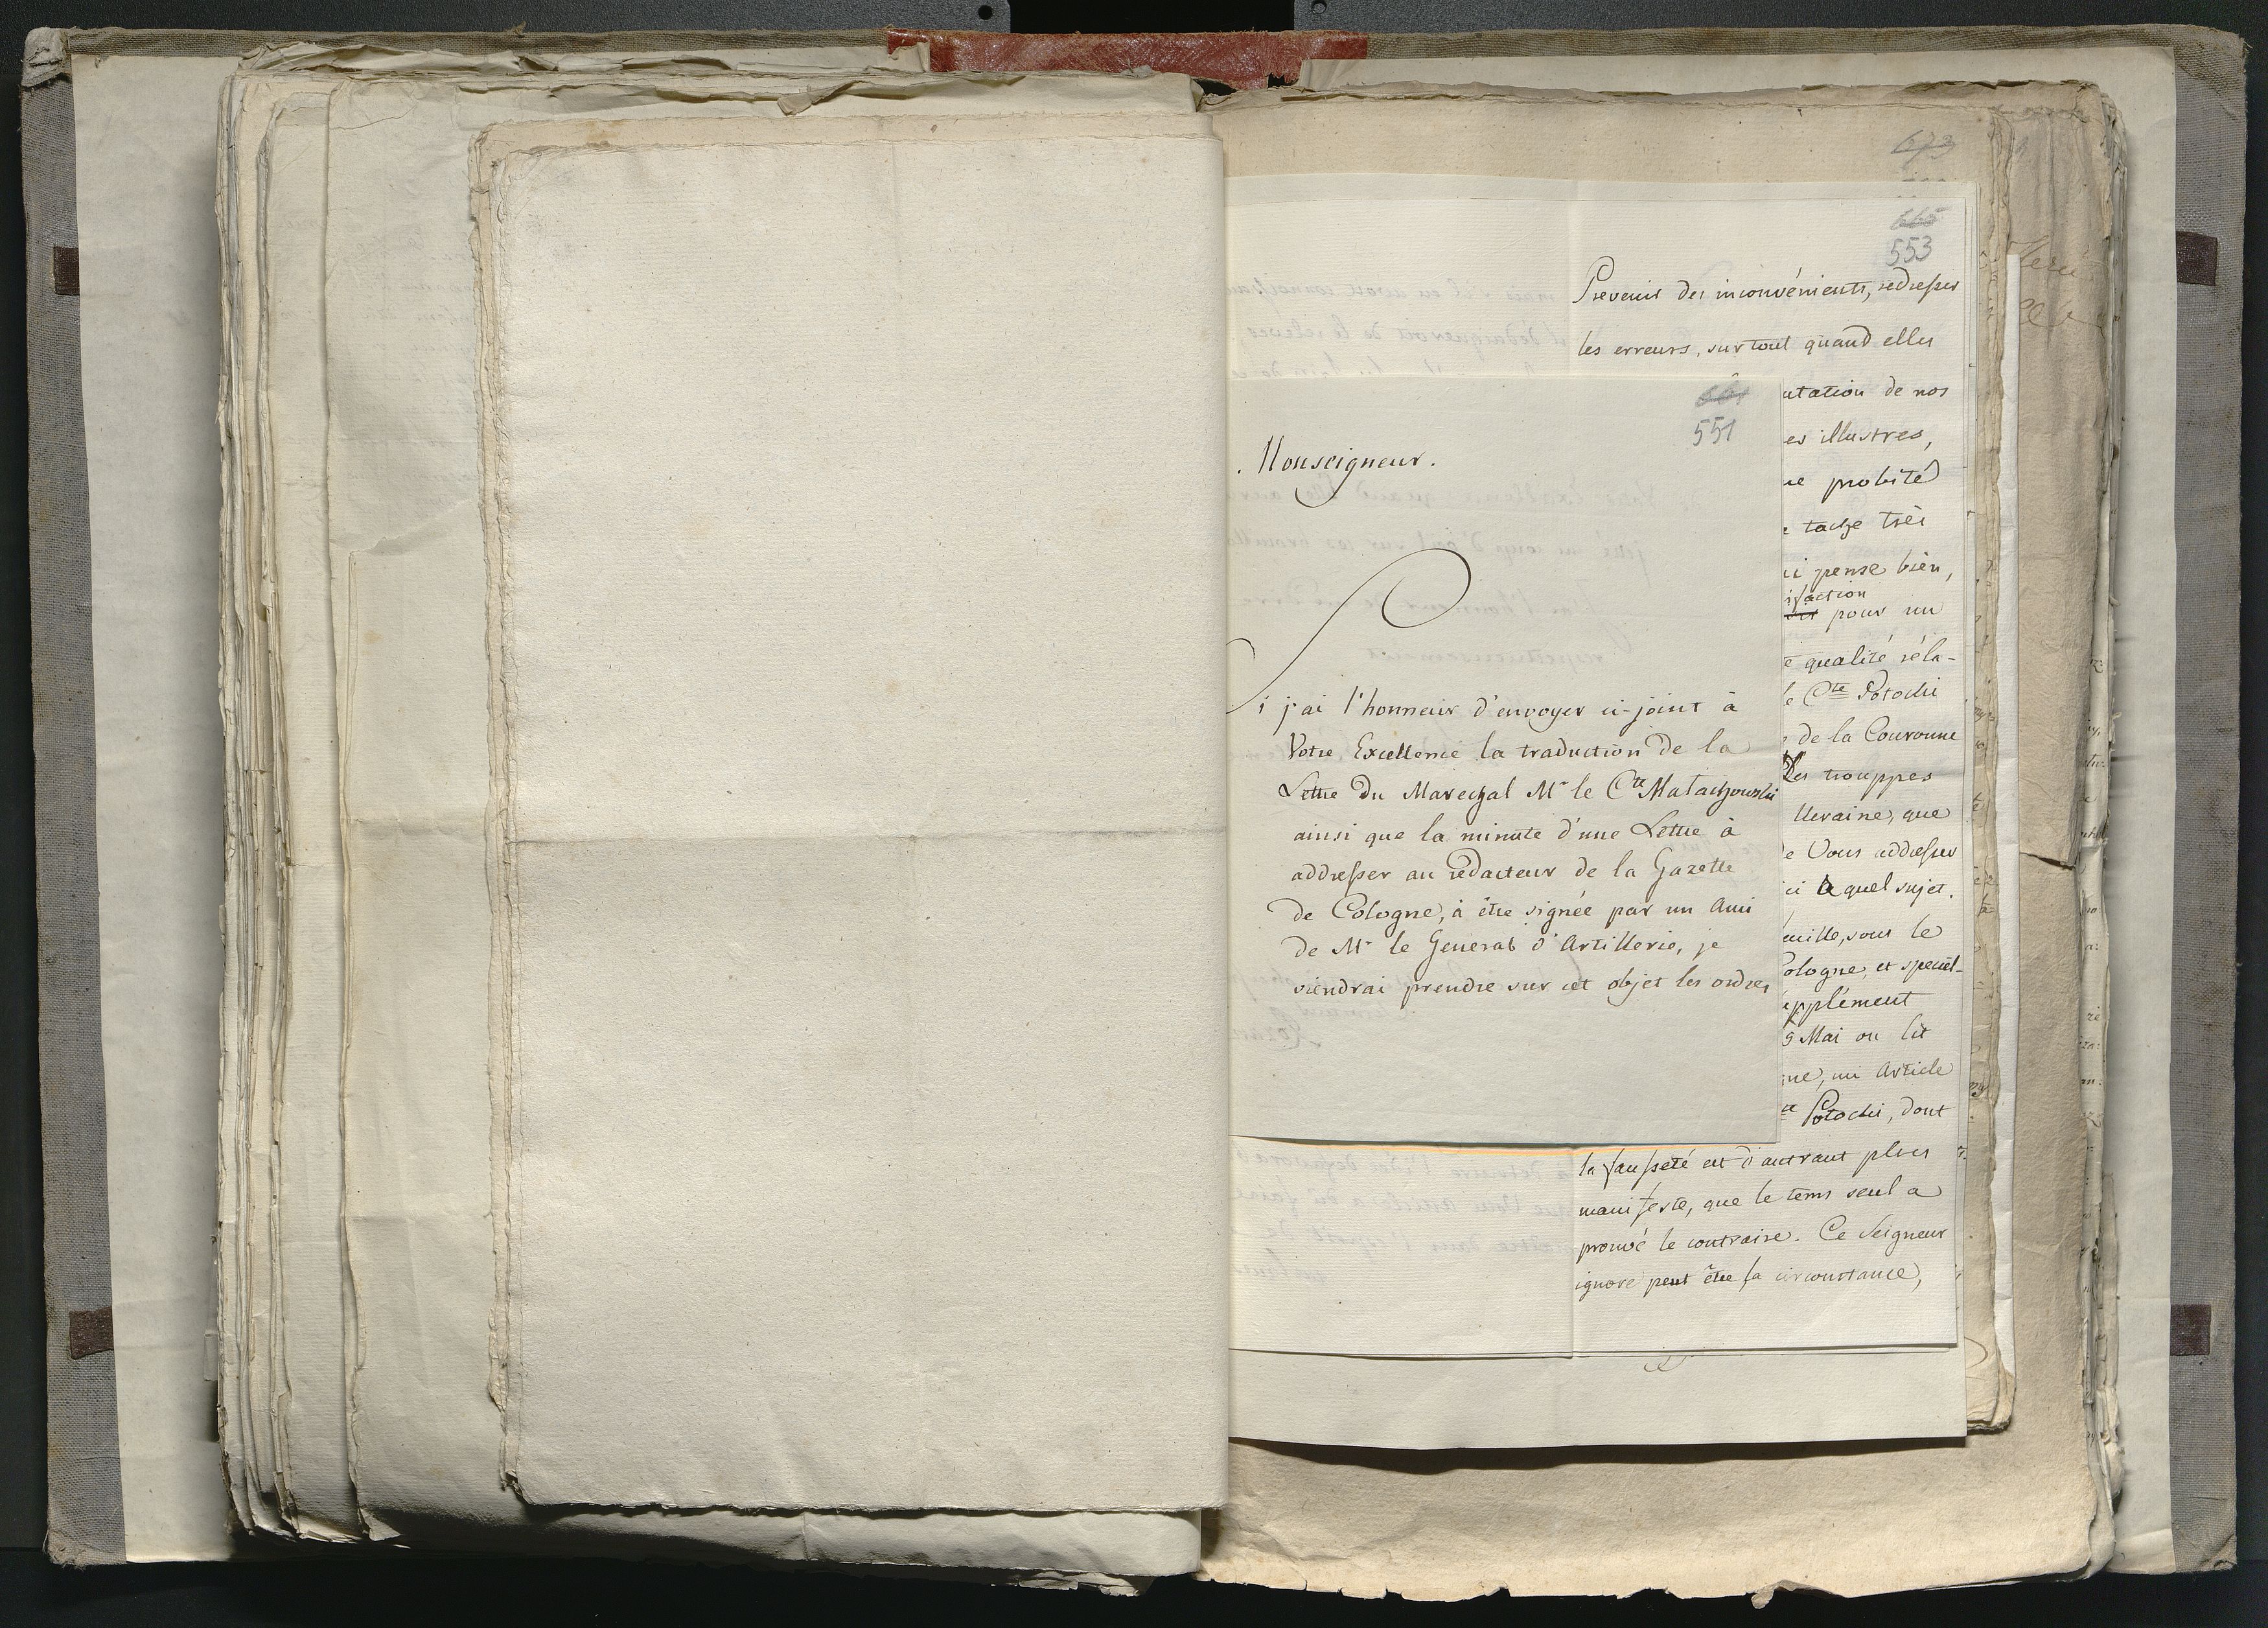 673
665
553
Prevenir des inconvénients, redresser
les erreurs, surtout quand elles
utation de nos
es illustres,
ue probité
tache très
ui pense bien,
isfaction
pour un
e qualité réla-
le Cte Potocki
de la Couronne
Des trouppes
Ukraine, que
de Vous addresser
ici à quel sujet.
euille, sous le
Cologne, et speciel-
upplément
9 Mai on lit
ne, un Article
Potocki, dont
la fausseté est d'autant plus
manifeste, que le tems seul a
prouvé le contraire. Ce Seigneur
ignore peut être la circonstance,
551
Monseigneur.
Si j'ai l'honneur d'envoyer ci-joint à
Votre Excellence la traduction de la
Lettre du Marechal Mr le Cte Malachowski
ainsi que la minute d'une Lettre à
addresser au rédacteur de la Gazette
de Cologne, à être signée par un Ami
de Mr le General d'Artillerie, je
viendrai prendre sur cet objet les ordres